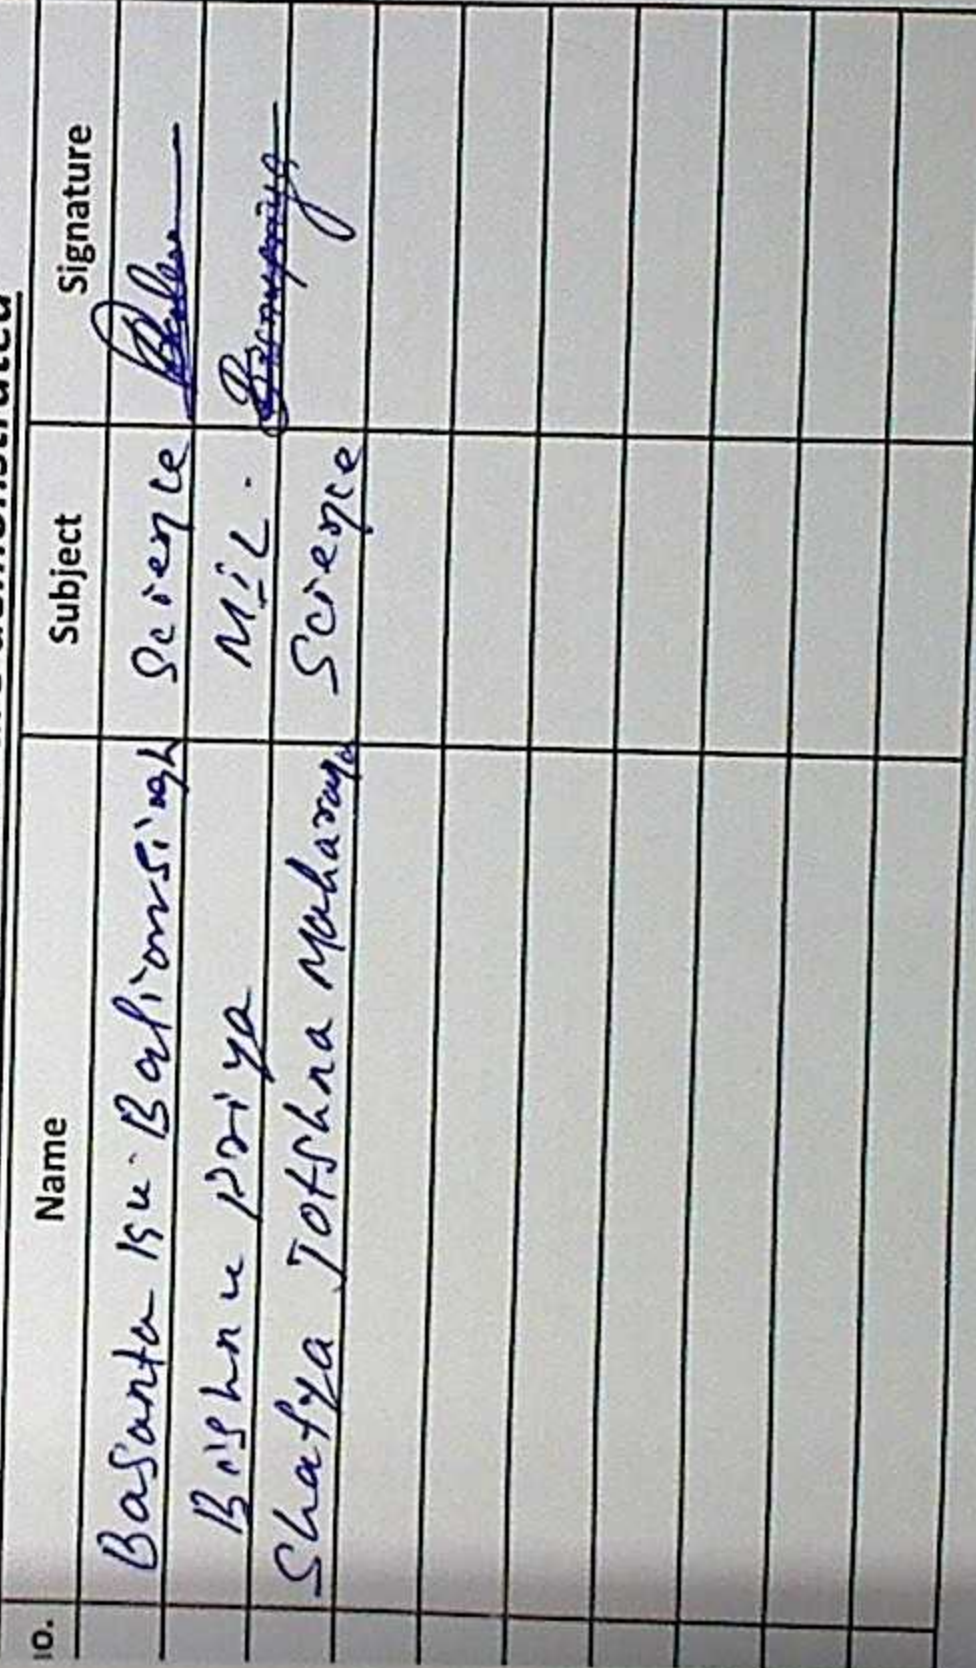 Name Subject Signature
Basanta Ku. Baliarsingh Science
Bishnu priya MIL.
Shatya Jotshna Maharana Science